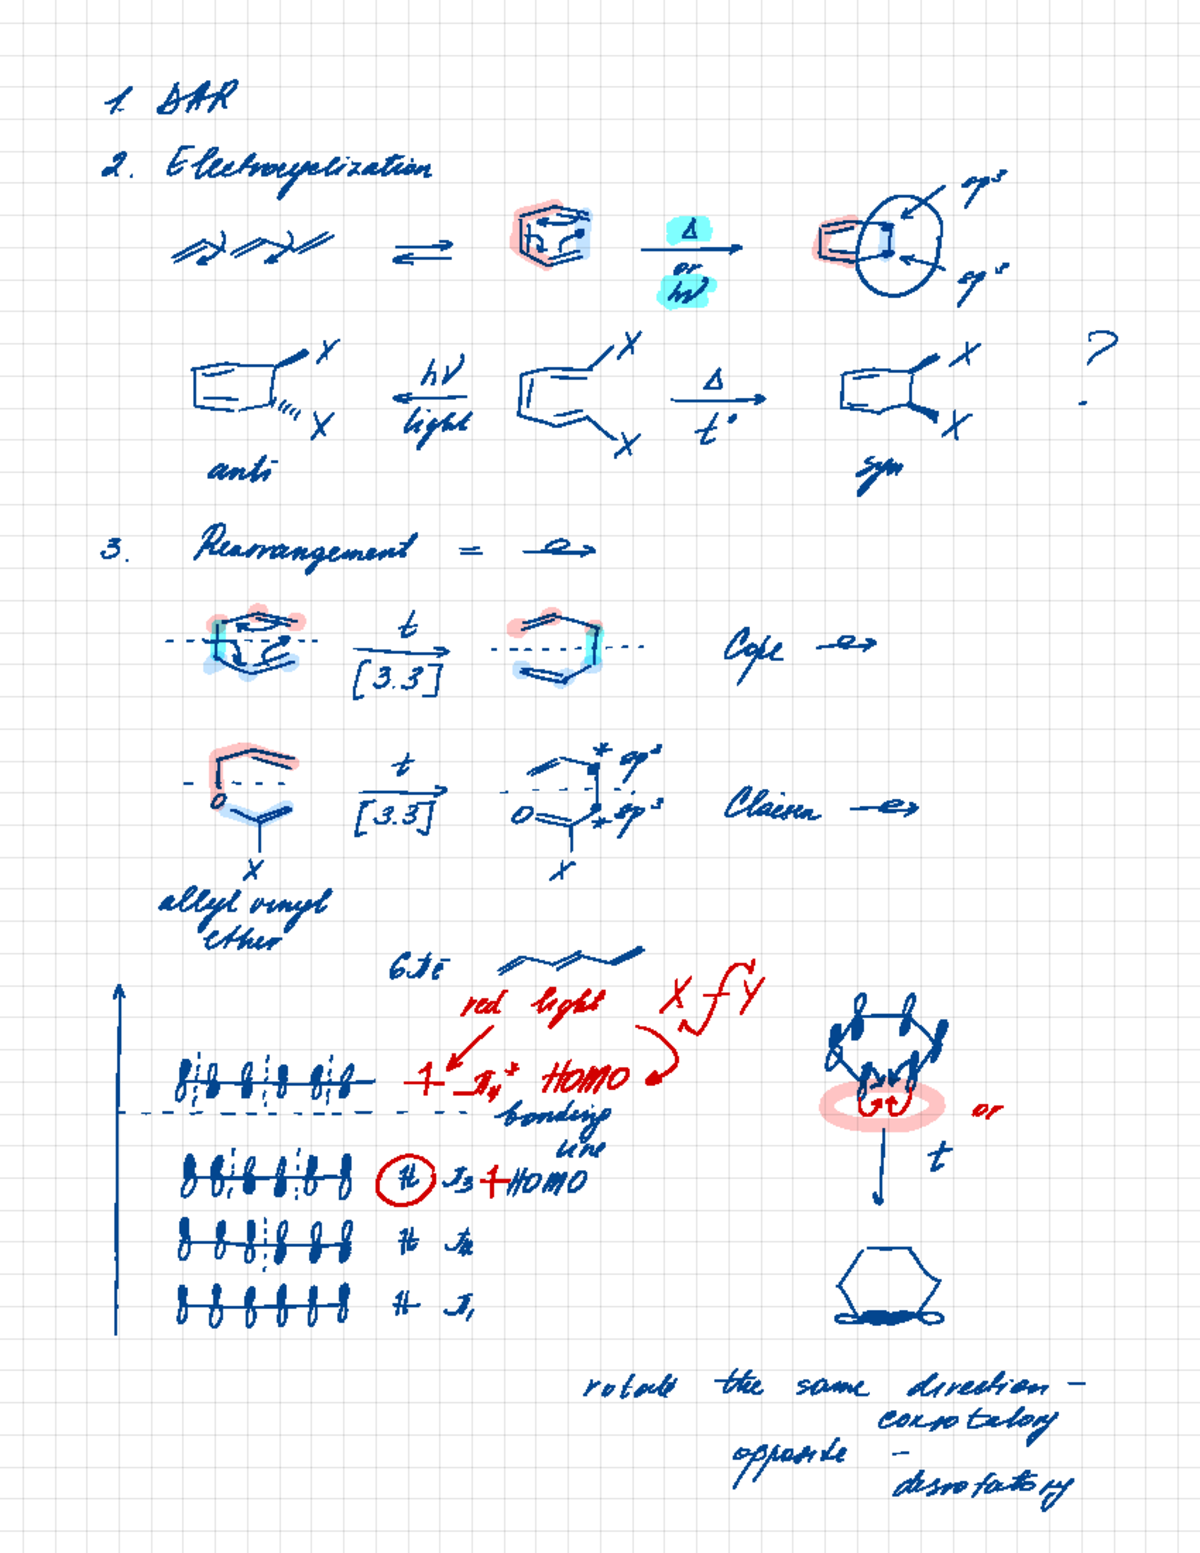 1. DAR
2. Electrocyclization
sp³
Δ
or
hν
sp³
X
hν
X
Δ
X
?
X
light
X
t°
X
anti
syn
3. Rearrangement =
t
[3.3]
Cope
* sp³
t
O
[3.3]
O
* sp³
Claisen
X
X
allyl vinyl
ether
6πē
red light
X
Y
π₄* HOMO
bonding
line
or
t
π₃ HOMO
π₂
π₁
rotate the same direction -
conrotatory
opposite -
disrotatory